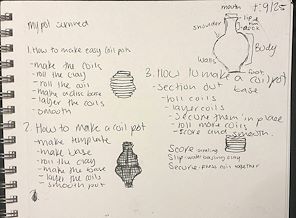 mouth
lip
neck
shoulder
Body
walls
foot
1. How to make easy coil pot
- make the coils
- roll the clay
- roll the coil
- make a disc base
- layer the coils
- smooth
2. How to make a coil pot
- make template
- make base
- roll the clay
- make the base
- layer the coils
- smooth pot
3. How to make a coil pot
- section out base
- roll coils
- layer coils
- secure them in place
- roll more coils
- score and smooth.
Score-
Slip-
Secure-